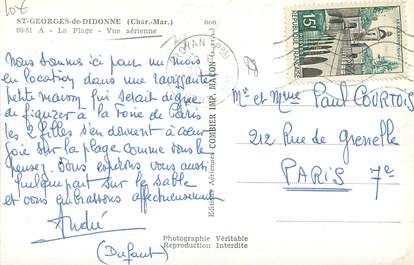 10€
ST-GEORGES-de-DIDONNE (Char.-Mar.)
80-51 A - La Plage - Vue aérienne
Nous sommes ici pour un mois
en location dans une ravissante
petite maison qui serait digne
de figurer à la Foire de Paris
les 2 filles s'en donnent à cœur
joie sur la plage comme vous le
pensez. Vous espérons vous aussi
quelque part sur le sable
et vous embrassons affectueusement
André
(Dufaut)
Photographie Véritable
Reproduction Interdite
Editions Aériennes COMBIER IMP. MACON
ROYAN
15F
Mr et Mme Paul COURTOIS
212 Rue de Grenelle
PARIS 7e